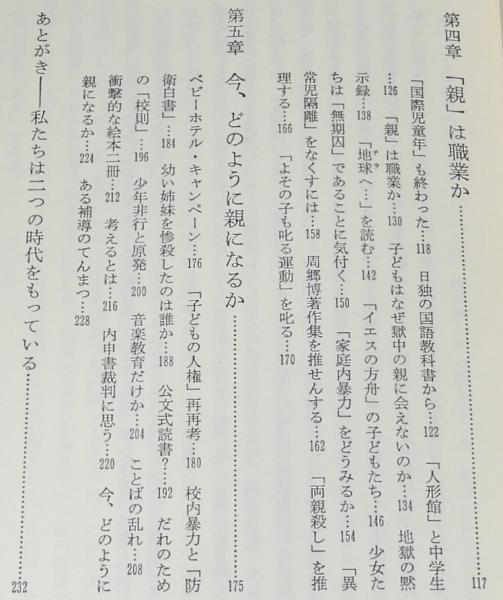 第四章 「親」は職業か……………………………117
「国際児童年」も終わった…118 日独の国語教科書から…122 「人形館」と中学生
…126 「親」は職業か…130 子どもはなぜ獄中の親に会えないのか…134 地獄の黙
示録…138 「地球へ…」を読む…142 「イエスの方舟」の子どもたち…146 少女た
ちは「無期囚」であることに気付く…150 「家庭内暴力」をどうみるか…154 「異
常児隔離」をなくすには…158 周郷博著作集を推せんする…162 「両親殺し」を推
理する…166 「よその子も叱る運動」を叱る…170
第五章 今、どのように親になるか……………………………175
ベビーホテル・キャンペーン…176 「子どもの人権」再再考…180 校内暴力と「防
衛白書」…184 幼い姉妹を惨殺したのは誰か…188 公文式読書？…192 だれのため
の「校則」…196 少年非行と原発…200 音楽教育だけか…204 ことばの乱れ…208
衝撃的な絵本二冊…212 考えるとは…216 内申書裁判に思う…220 今、どのように
親になるか…224 ある補導のてんまつ…228
あとがき――私たちは二つの時代をもっている……………………………232